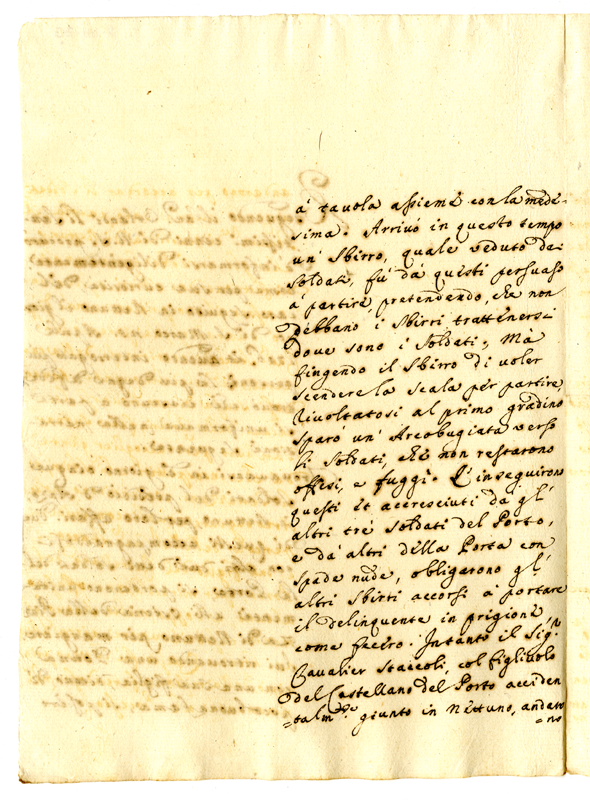 à tavola assieme con la mede-
sima. Arrivò in questo tempo
un' Sbirro, quale veduto dai
Soldati, fù dà questi persuaso
à partire, pretendendo, che non
debbano i Sbirri trattenersi
dove sono i Soldati; Mà
fingendo il Sbirro di voler
scendere la scala per partire
rivoltatosi al primo gradino
sparò un' Arcobugiata verso
li Soldati, che non restarono
offesi, e fuggì. L'inseguirono
questi et accresciuti dà gl'
altri trè Soldati del Porto,
e dà altri della Porta con
spade nude, obligarono gl'
altri Sbirri accorsi à portare
il delinquente in prigione,
come fecero. Intanto il Sig.r
Cavalier Staccoli, col figlivolo
del Castellano del Porto acciden
=talm.te giunto in Nettuno, andaro
=no